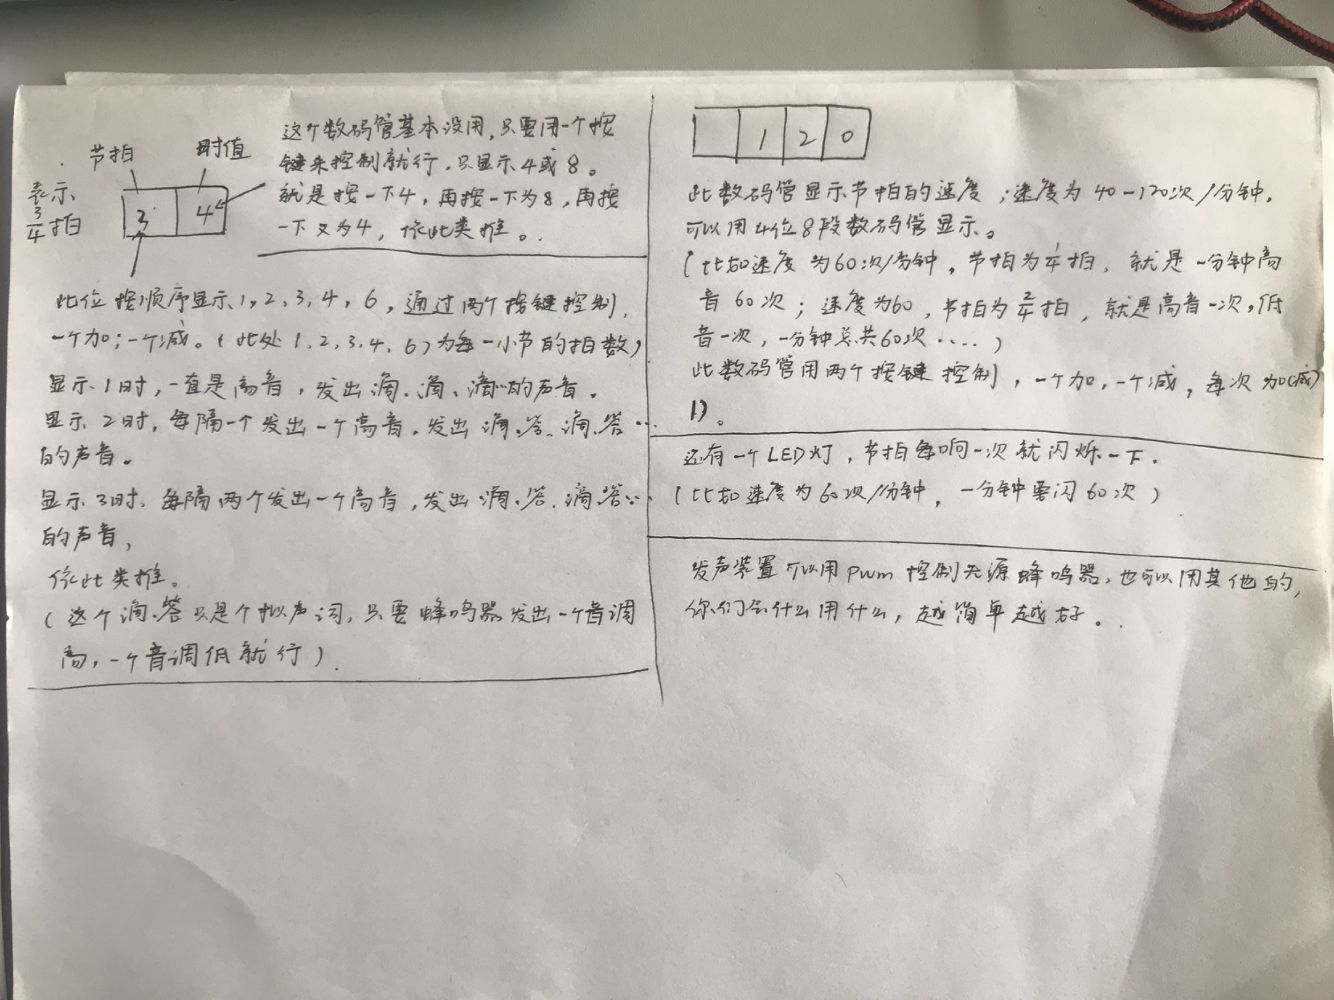 节拍
时值
表示
3/4拍
3
4
这个数码管基本没用,只要用一个按
键来控制就行,只显示4或8。
就是按一下4,再按一下为8,再按
一下又为4,依此类推。
此位按顺序显示1,2,3,4,6,通过两个按键控制,
一个加;一个减。(此处1,2,3,4,6)为每一小节的拍数)
显示1时,一直是高音,发出滴、滴、滴…的声音。
显示2时,每隔一个发出一个高音,发出滴、答、滴、答…
的声音。
显示3时、每隔两个发出一个高音,发出滴、答、滴、答…
的声音,
依此类推。
(这个滴、答只是个拟声词,只要蜂鸣器发出一个音调
高,一个音调低就行).
1 2 0
此数码管显示节拍的速度;速度为40-120次/分钟,
可以用4位8段数码管显示。
(比如速度为60次/分钟,节拍为1/4拍,就是一分钟高
音60次;速度为60,节拍为2/4拍,就是高音一次,低
音一次,一分钟总共60次....)
此数码管用两个按键控制,一个加,一个减,每次加(减)
1)。
还有一个LED灯,节拍每响一次就闪烁一下.
(比如速度为60次/分钟,一分钟要闪60次)
发声装置可以用pwm控制无源蜂鸣器,也可以用其他的,
你们会什么用什么,越简单越好。